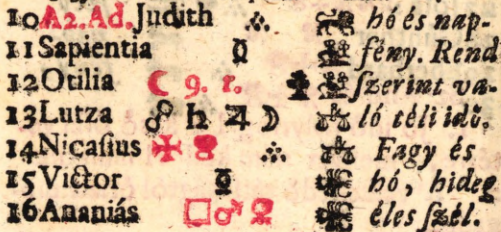 10 A2. Ad. Judith ⛬ hó és nap-
11 Sapientia fény. Rend
12 Otilia ☾ 9. r. ſzerint va-
13 Lutza ☍ ♄ ♃ ☽ ló téli idő.
14 Nicaſius ✠ ⛬ Fagy és
15 Victor hó, hideg
16 Ananiás □ ♂ éles ſzél.